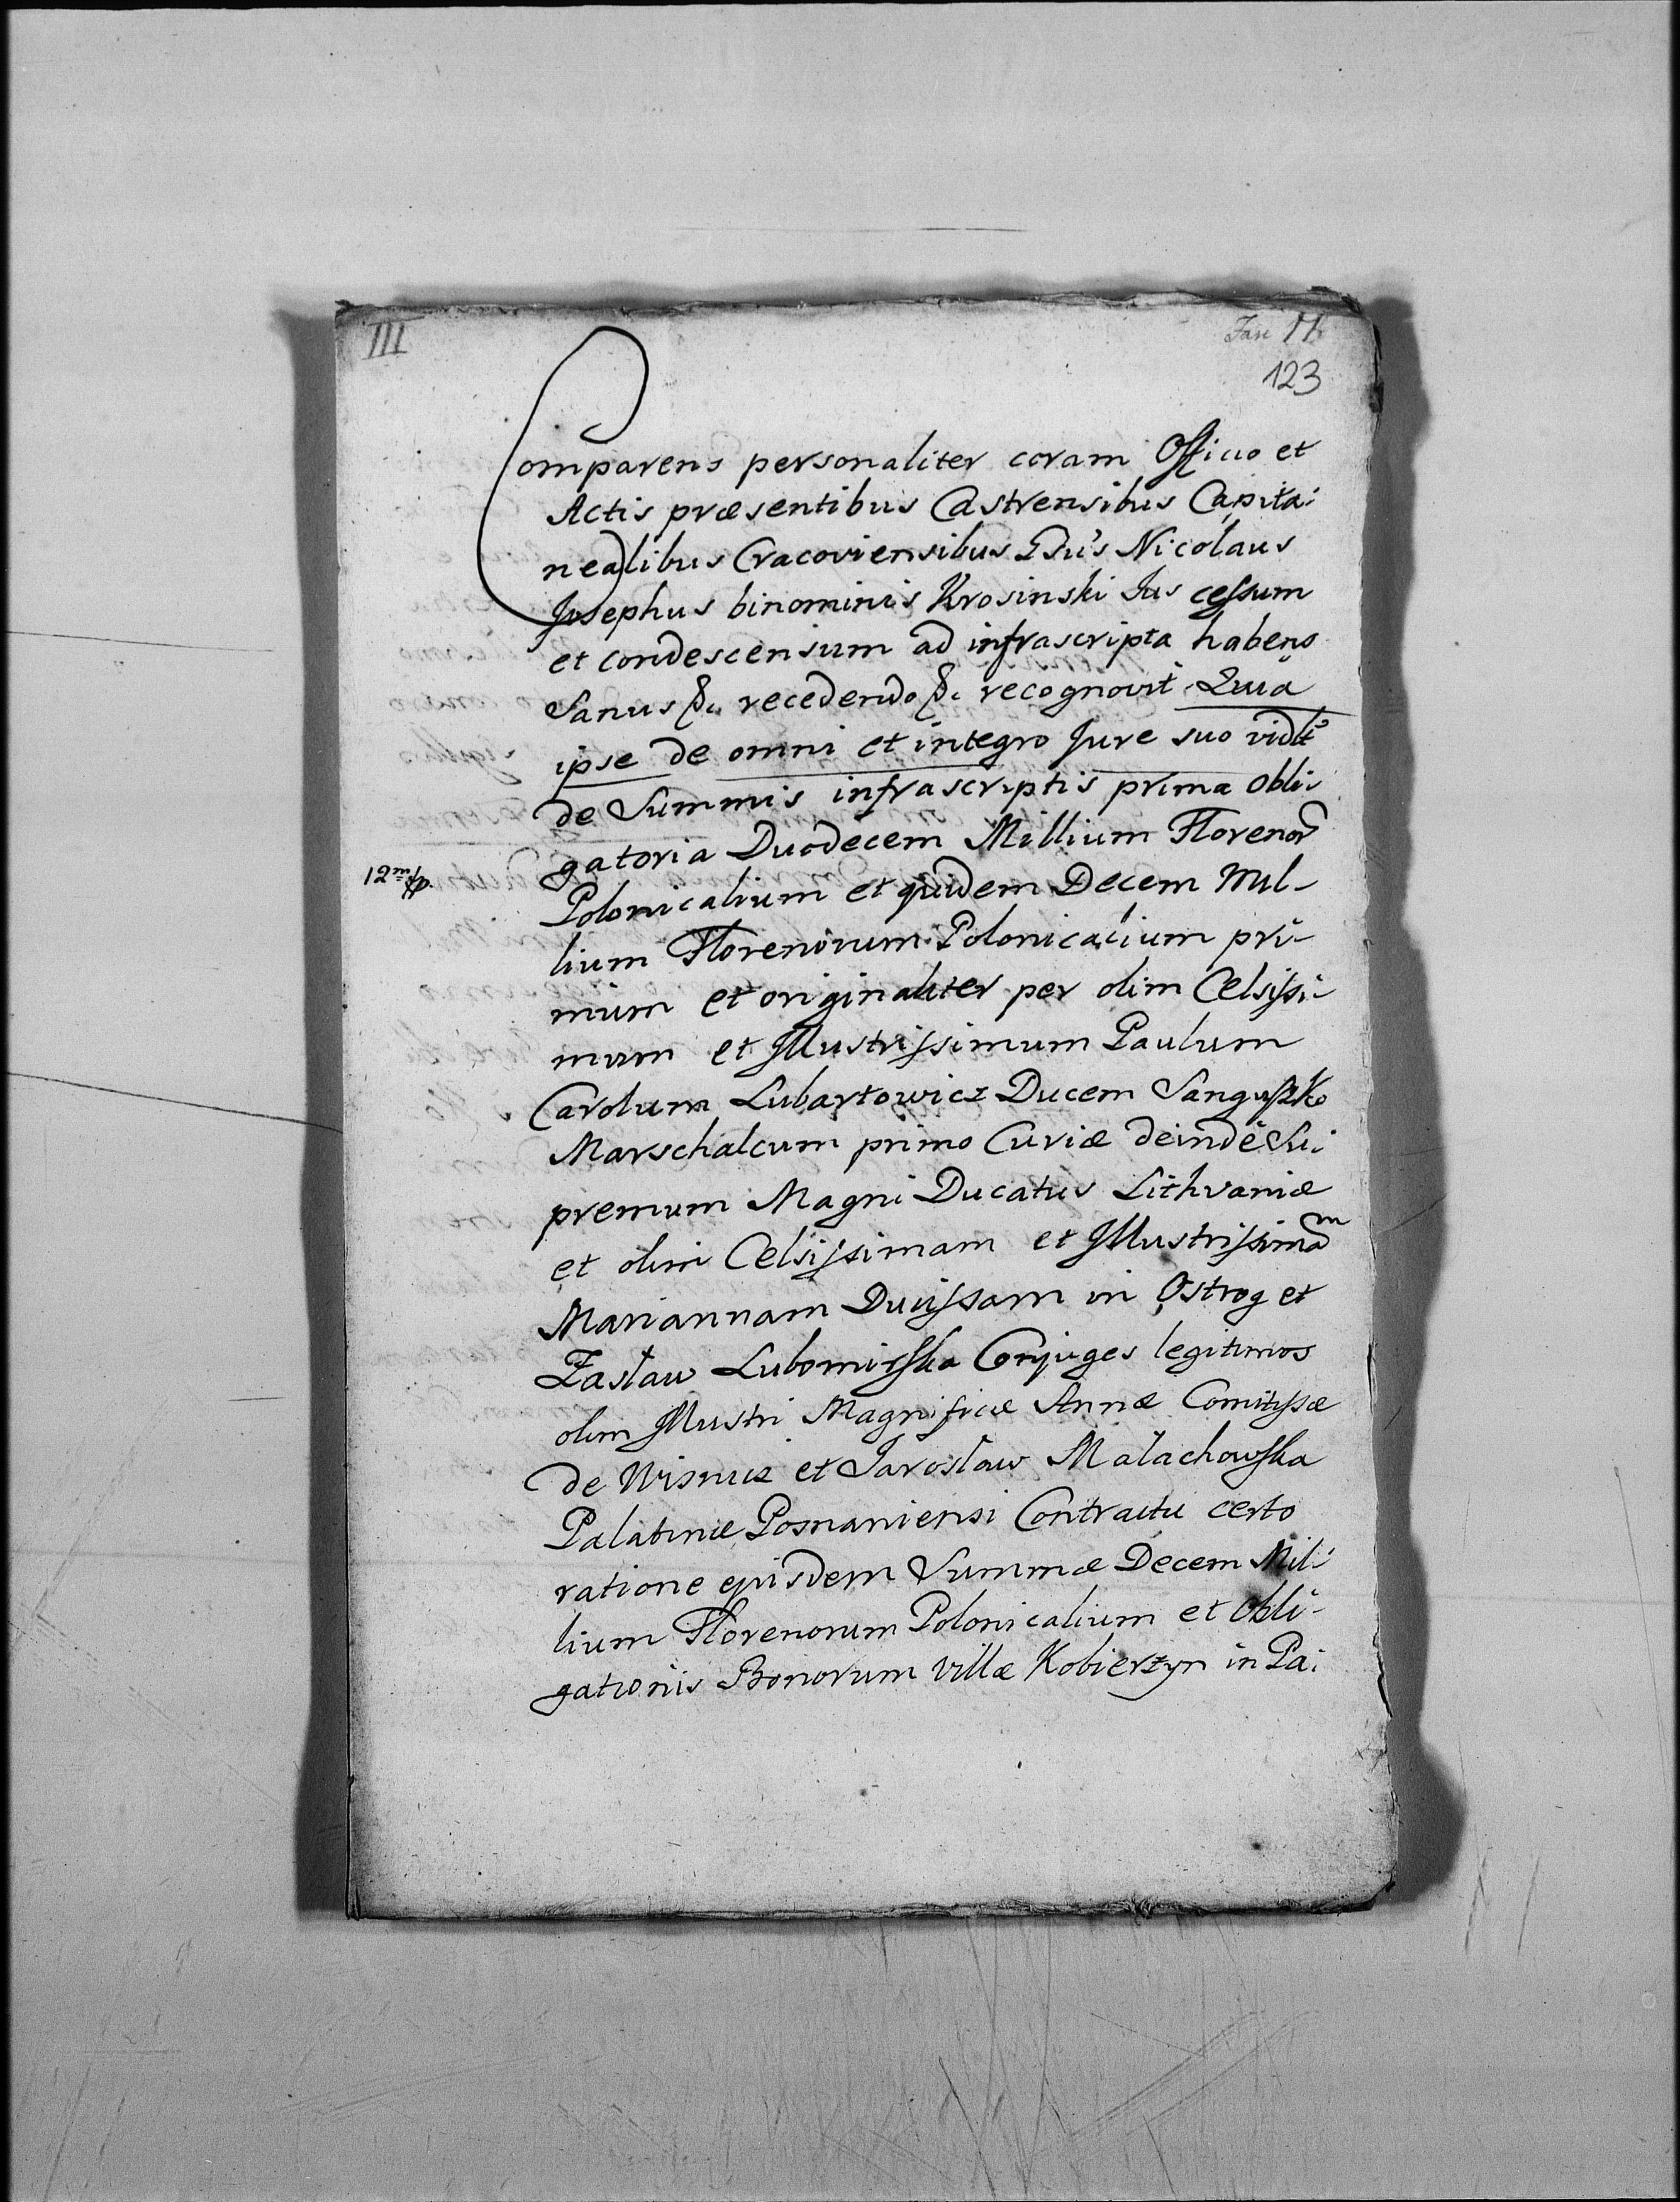 III
Fasc 11
123
Comparens personaliter coram Officio et
Actis præsentibus Castrensibus Capita:
nealibus Cracoviensibus Gsus Nicolaus
Josephus binominis Krosinski Jus cessum
et condescensum ad infrascripta habens
Sanus &c. recedendo &c. recognovit Quia
ipse de omni et integro Jure suo vidlt
de Summis infrascriptis prima obli:
gatoria Duodecem Millium Florenor
12m fp.
Polonicalium et quidem Decem Mil-
lium Florenorum Polonicalium pri-
mum et originaliter per olim Celsissi-
mum et Illustrissimum Paulum
Carolum Lubartowicz Ducem Sanguszko
Marschalcum primo Curiæ deinde Su:
premum Magni Ducatus Lithvaniæ
et olim Celsissimam et Illustrissimam
Mariannam Ducissam in Ostrog et
Zasław Lubomirska Conjuges legitimos
olim Illustri Magnificæ Annæ Comitissæ
de Wisnicz et Jarosław Małachowska
Palatinæ Posnaniensi Contractu certo
ratione ejusdem Summæ Decem Mil:
lium Florenorum Polonicalium et Obli-
gationis Bonorum Villæ Kobierzyn in Pa: